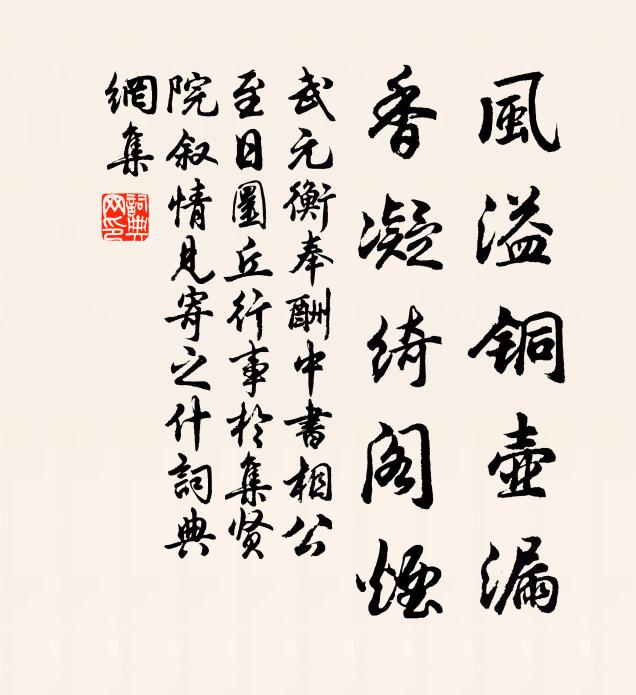 風溢铜壺漏
香凝绮阁煙
武元衡奉酬中書相公
至日圜丘行事於集贤
院叙情見寄之什詞典
網集
詞典網印